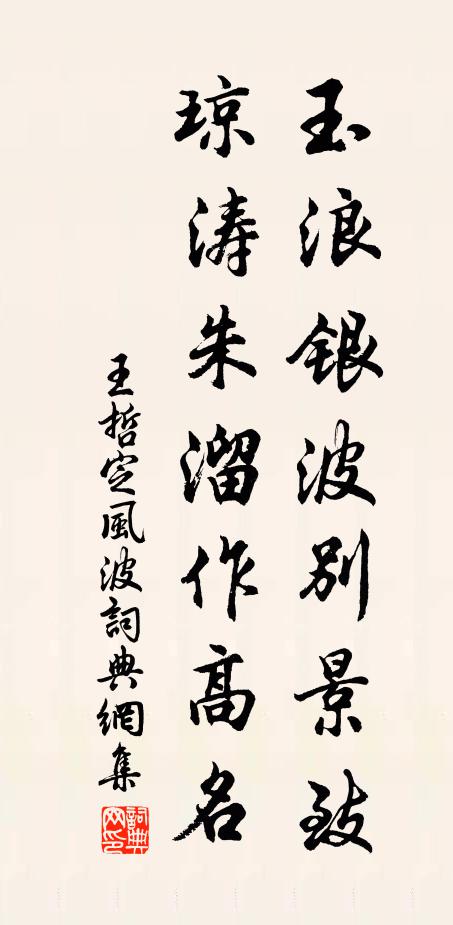 玉浪银波别景致
琼涛朱溜作高名
王哲定風波詞典網集
詞典网印